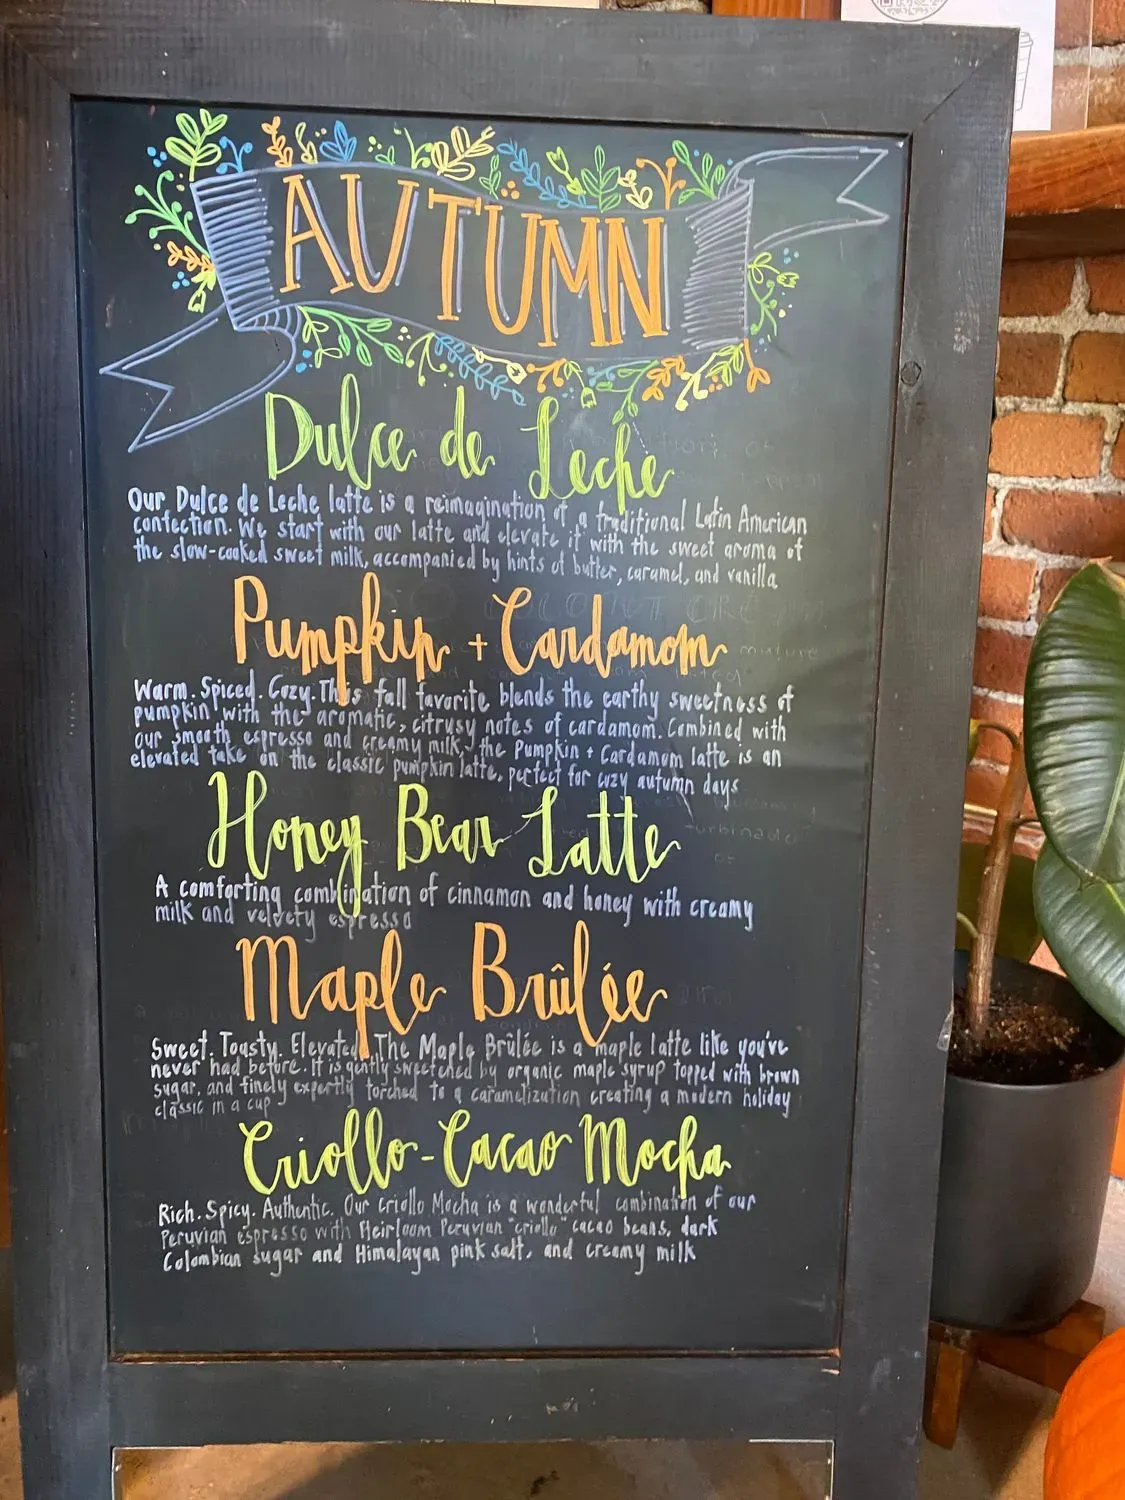 AUTUMN
Dulce de Leche
Our Dulce de Leche latte is a reimagination of a traditional Latin American
confection. We start with our latte and elevate it with the sweet aroma of
the slow-cooked sweet milk, accompanied by hints of butter, caramel, and vanilla
Pumpkin + Cardamom
Warm. Spiced. Cozy. This fall favorite blends the earthy sweetness of
pumpkin with the aromatic, citrusy notes of cardamom. Combined with
our smooth espresso and creamy milk, the Pumpkin + Cardamom latte is an
elevated take on the classic pumpkin latte, perfect for cozy autumn days
Honey Bear Latte
A comforting combination of cinnamon and honey with creamy
milk and velvety espresso
Maple Brûlée
Sweet. Toasty. Elevated. The Maple Brûlée is a maple latte like you've
never had before. It is gently sweetened by organic maple syrup topped with brown
sugar, and finely expertly torched to a caramelization creating a modern holiday
classic in a cup
Criollo-Cacao Mocha
Rich. Spicy. Authentic. Our criollo Mocha is a wonderful combination of our
Peruvian espresso with Heirloom Peruvian "criollo" cacao beans, dark
Colombian sugar and Himalayan pink salt, and creamy milk